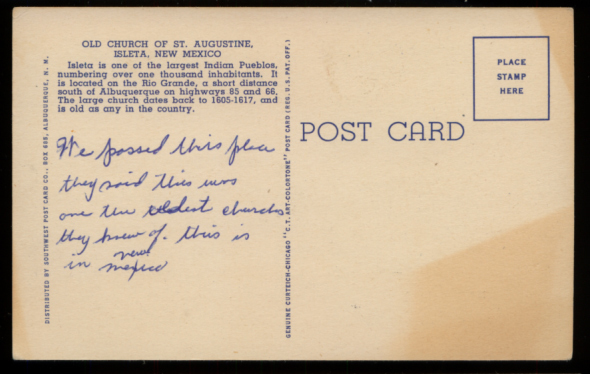 OLD CHURCH OF ST. AUGUSTINE,
ISLETA, NEW MEXICO
Isleta is one of the largest Indian Pueblos,
numbering over one thousand inhabitants. It
is located on the Rio Grande, a short distance
south of Albuquerque on highways 85 and 66.
The large church dates back to 1605-1617, and
is old as any in the country.
We passed this place
they said this was
one the oldest churches
they knew of. this is
in new
mexico
DISTRIBUTED BY SOUTHWEST POST CARD CO., BOX 685, ALBUQUERQUE, N. M.
GENUINE CURTEICH-CHICAGO "C. T. ART-COLORTONE" POST CARD (REG. U. S. PAT. OFF.)
POST CARD
PLACE
STAMP
HERE